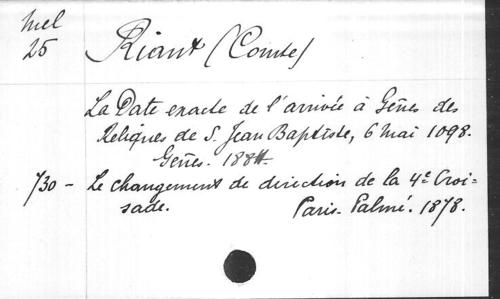 Mel
25
Riant (Comte)
La Date exacte de l'arrivée à Gênes des
Reliques de S. Jean Baptiste, 6 mai 1098.
Gênes. 1884.
730 - Le changement de direction de la 4e Croi-
sade. Paris. Palmé. 1878.